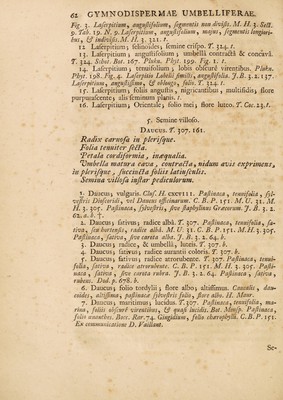 62 GYMNODISPERMAE UMBELLIFERAE.
Fig. 3. Laserpitium, angustifolium, segmentis non divisis. M. H. 3. Sect.
9. Tab. 19. N. 9. Laserpitium, angustifolium, majus, segmentis longiori-
bus, & indivisis. M. H. 3. 321. t.
12 Laserpitium, selinoides, semine crispo. T. 324. t.
13 Laserpitium, angustifolium, umbella contracta & concava.
T. 324. Schol. Bot. 167. Plukn. Phyt. 199. Fig. 1. t.
14 Laserpitium; tenuifolium; lobis obscure virentibus. Plukn.
Phyt. 198. Fig. 4. Laserpitio Lobelii similis, angustifolia. J. B. 3. 2. 137.
Laserpitium, angustissimo, & oblongo, folio. T. 324. t.
15 Laserpitium, foliis angustis, nigricantibus, multifidis, flore
purpurascente, alis seminum planis. t.
16 Laserpitium, Orientale, folio mei, flore luteo. T. Cor. 23. t.
5. Semine villoso.
DAUCUS. T. 307. 161.
Radix carnosa in plerisque.
Folia tenuiter secta.
Petala cordiformia, inaequalia.
Umbella matura cava, contracta, nidum avis exprimens,
in plerisque, succincta foliis latiusculis.
Semina villosa instar pedicularum.
1. Daucus; vulgaris. Clus. H. CXCVIII. Pastinaca, tenuifolia, syl-
vestris Dioscoridi, vel Daucus officinarum. C. B. P. 151. M. U. 31. M.
H. 3. 305. Pastinaca, sylvestris, sive Staphylinus Graecorum. J. B. 3. 2.
62. a. b. 7.
2. Daucus; sativus; radice alba. T. 307. Pastinaca, tenuifolia, sa-
tiva, seu hortensis, radice alba. M. U. 31. C. B. P. 151. M. H. 3. 305.
Pastinaca, sativa, sive carota alba. J. B. 3. 2. 64. b.
3. Daucus; radice, & umbella, luteis. T. 307. b.
4. Daucus; sativus; radice aurantii coloris. T. 307. b.
5. Daucus; sativus; radice atrorubente. T. 307. Pastinaca, tenui-
folia, sativa, radice atrorubente. C. B. P. 151. M. H. 3. 305. Pasti-
naca, sativa, sive carota rubra. J. B. 3. 2. 64. Pastinaca, sativa,
rubens. Dod. p. 678. b.
6. Daucus; folio tordylii; flore albo; altissimus. Caucalis, dau-
coides, altissima, pastinacae sylvestris folio, flore albo. H. Monr.
7. Daucus; maritimus; lucidus. T. 307. Pastinaca, tenuifolia, ma-
rina, foliis obscure virentibus, & quasi lucidis. Bot. Monsp. Pastinaca,
folio oenanthes. Bocc. Rar. 74. Gingidium, folio chaerophylli. C. B. P. 151.
Ex communicatione D. Vaillant.
Se-